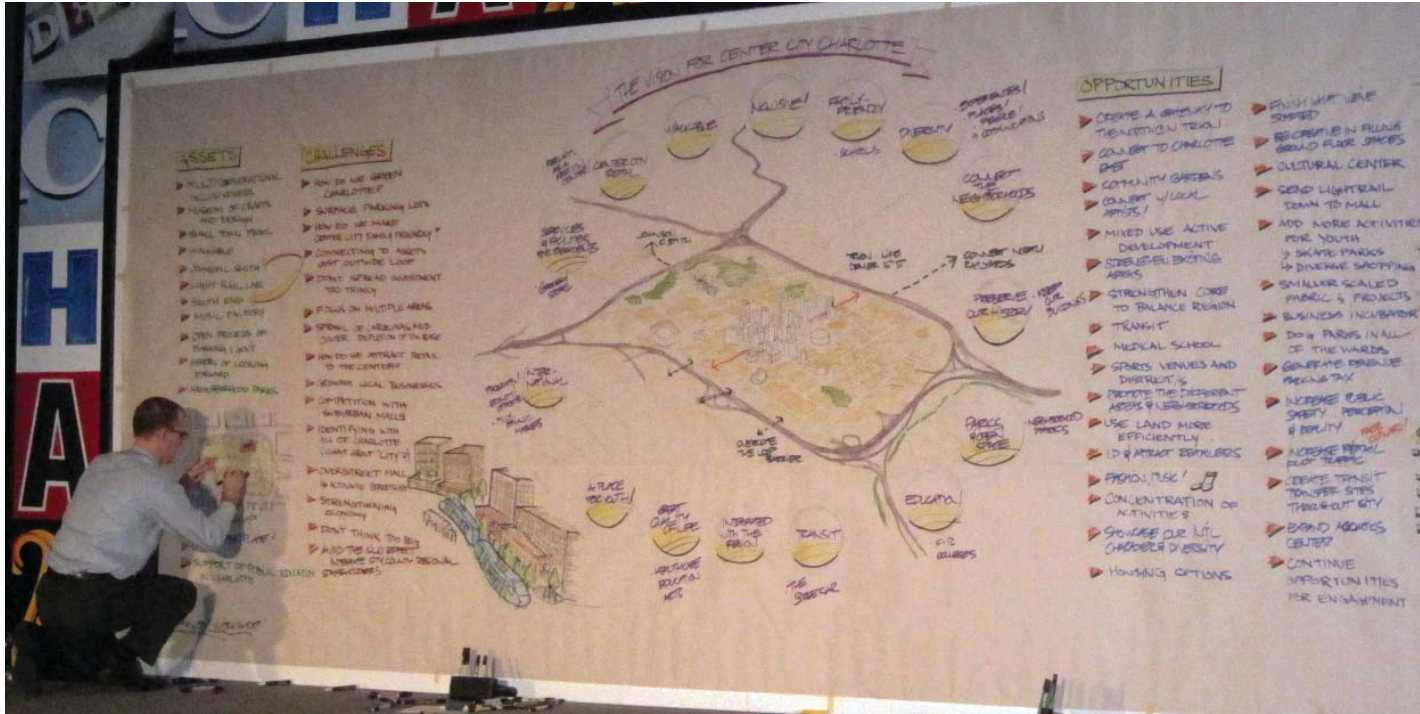 THE VISION FOR CENTER CITY CHARLOTTE
ASSETS
MULTI GENERATIONAL
INCLUSIVENESS
MUSEUM OF CRAFTS
AND DESIGN
SMALL TOWN FEEL
WALKABLE
JOHNSON C. SMITH
LIGHT RAIL LINE
SOUTH END
MUSIC FACTORY
OPEN PROCESS OF
PLANNING & GOVT
HISTORY OF LOOKING
FORWARD
NEIGHBORHOOD PARKS
PLATE!
SUPPORT OF PUBLIC EDUCATION
IN CHARLOTTE
WORKSHOP
CHALLENGES
HOW DO WE GREEN
CHARLOTTE?
SURFACE PARKING LOTS
HOW DO WE MAKE
CENTER CITY FAMILY FRIENDLY?
CONNECTING TO ASSETS
JUST OUTSIDE LOOP
DON'T SPREAD INVESTMENT
TOO THINLY
FOCUS ON MULTIPLE AREAS
SPRAWL OF CAROLINAS MED
CENTER DEPLETION OF TAX BASE
HOW DO WE ATTRACT RETAIL
TO THE CENTER?
GROWING LOCAL BUSINESSES
COMPETITION WITH
SUBURBAN MALLS
IDENTIFYING WITH
ALL OF CHARLOTTE
(WHAT ABOUT "CITY"?)
OVERSTREET MALL
ACTIVATE STREETS
STRENGTHENING
ECONOMY
DON'T THINK TOO BIG
AVOID THE SILO EFFECT
INTEGRATE CITY, COUNTY, REGIONAL
STAKEHOLDERS
CENTER CITY
RETAIL
WALKABLE
INCLUSIVE!
FAMILY-
FRIENDLY
SCHOOLS
DIVERSITY
EXPERIENCES/
PLACES/
PEOPLE/
COMMUNICATIONS
CONNECT
THE
NEIGHBORHOODS
PRESERVE
OUR HISTORY
KEEP
OUR
BUILDINGS
PARKS
& OPEN
SPACE
NEIGHBORHOOD
PARKS
EDUCATION
K-12
COLLEGES
TRANSIT
THE
STREETCAR
INTEGRATED
WITH THE
REGION
GREAT
QUALITY
OF LIFE
HEALTHCARE
EDUCATION
ARTS
A PLACE
FOR YOUTH!
INTER-
NATIONAL
SERVICES
& FACILITIES
GROCERY
STORE
JOHNSON
C. SMITH
TRYON LIKE
CONNECT NORTH
OVERCOME
THE LOOP
BARRIER
OPPORTUNITIES
CREATE A GATEWAY TO
THE NORTH ON TRYON!
CONNECT TO CHARLOTTE
EAST
COMMUNITY GARDENS
CONNECT W/ LOCAL
ARTISTS!
MIXED USE ACTIVE
DEVELOPMENT
STRENGTHEN EXISTING
AREAS
STRENGTHEN CORE
TO BALANCE REGION
TRANSIT
MEDICAL SCHOOL
SPORTS VENUES AND
DISTRICT
PROMOTE THE DIFFERENT
AREAS & NEIGHBORHOODS
USE LAND MORE
EFFICIENTLY
I.D & ATTRACT RETAILERS
FASHION/MUSIC!
CONCENTRATION OF
ACTIVITIES
SHOWCASE OUR INT'L
CHARACTER & DIVERSITY
HOUSING OPTIONS
FINISH WHAT WE'VE
STARTED
BE CREATIVE IN FILLING
GROUND FLOOR SPACES
CULTURAL CENTER
SEND LIGHTRAIL
DOWN TO MALL
ADD MORE ACTIVITIES
FOR YOUTH
SKATE PARKS
DIVERSE SHOPPING
SMALLER SCALED
FABRIC & PROJECTS
BUSINESS INCUBATOR
DOG PARKS IN ALL
OF THE WARDS
GENERATE REVENUE
PARKING TAX
INCREASE PUBLIC
SAFETY - PERCEPTION
& REALITY
INCREASE RETAIL
FOOT TRAFFIC
CREATE TRANSIT
TRANSFER SITES
THROUGHOUT CITY
EXPAND AQUATICS
CENTER
CONTINUE
OPPORTUNITIES
FOR ENGAGEMENT